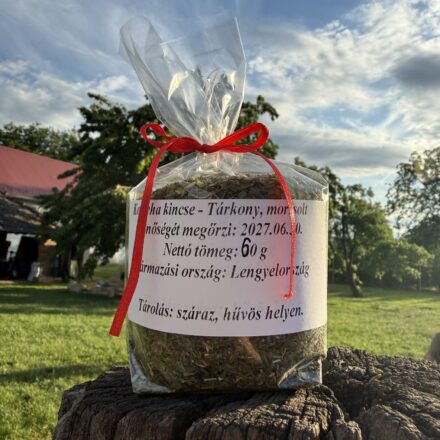 kincse - Tárkony, morzsolt
Minőségét megőrzi: 2027.06.30.
Nettó tömeg: 60 g
Származási ország: Lengyelország
Tárolás: száraz, hűvös helyen.